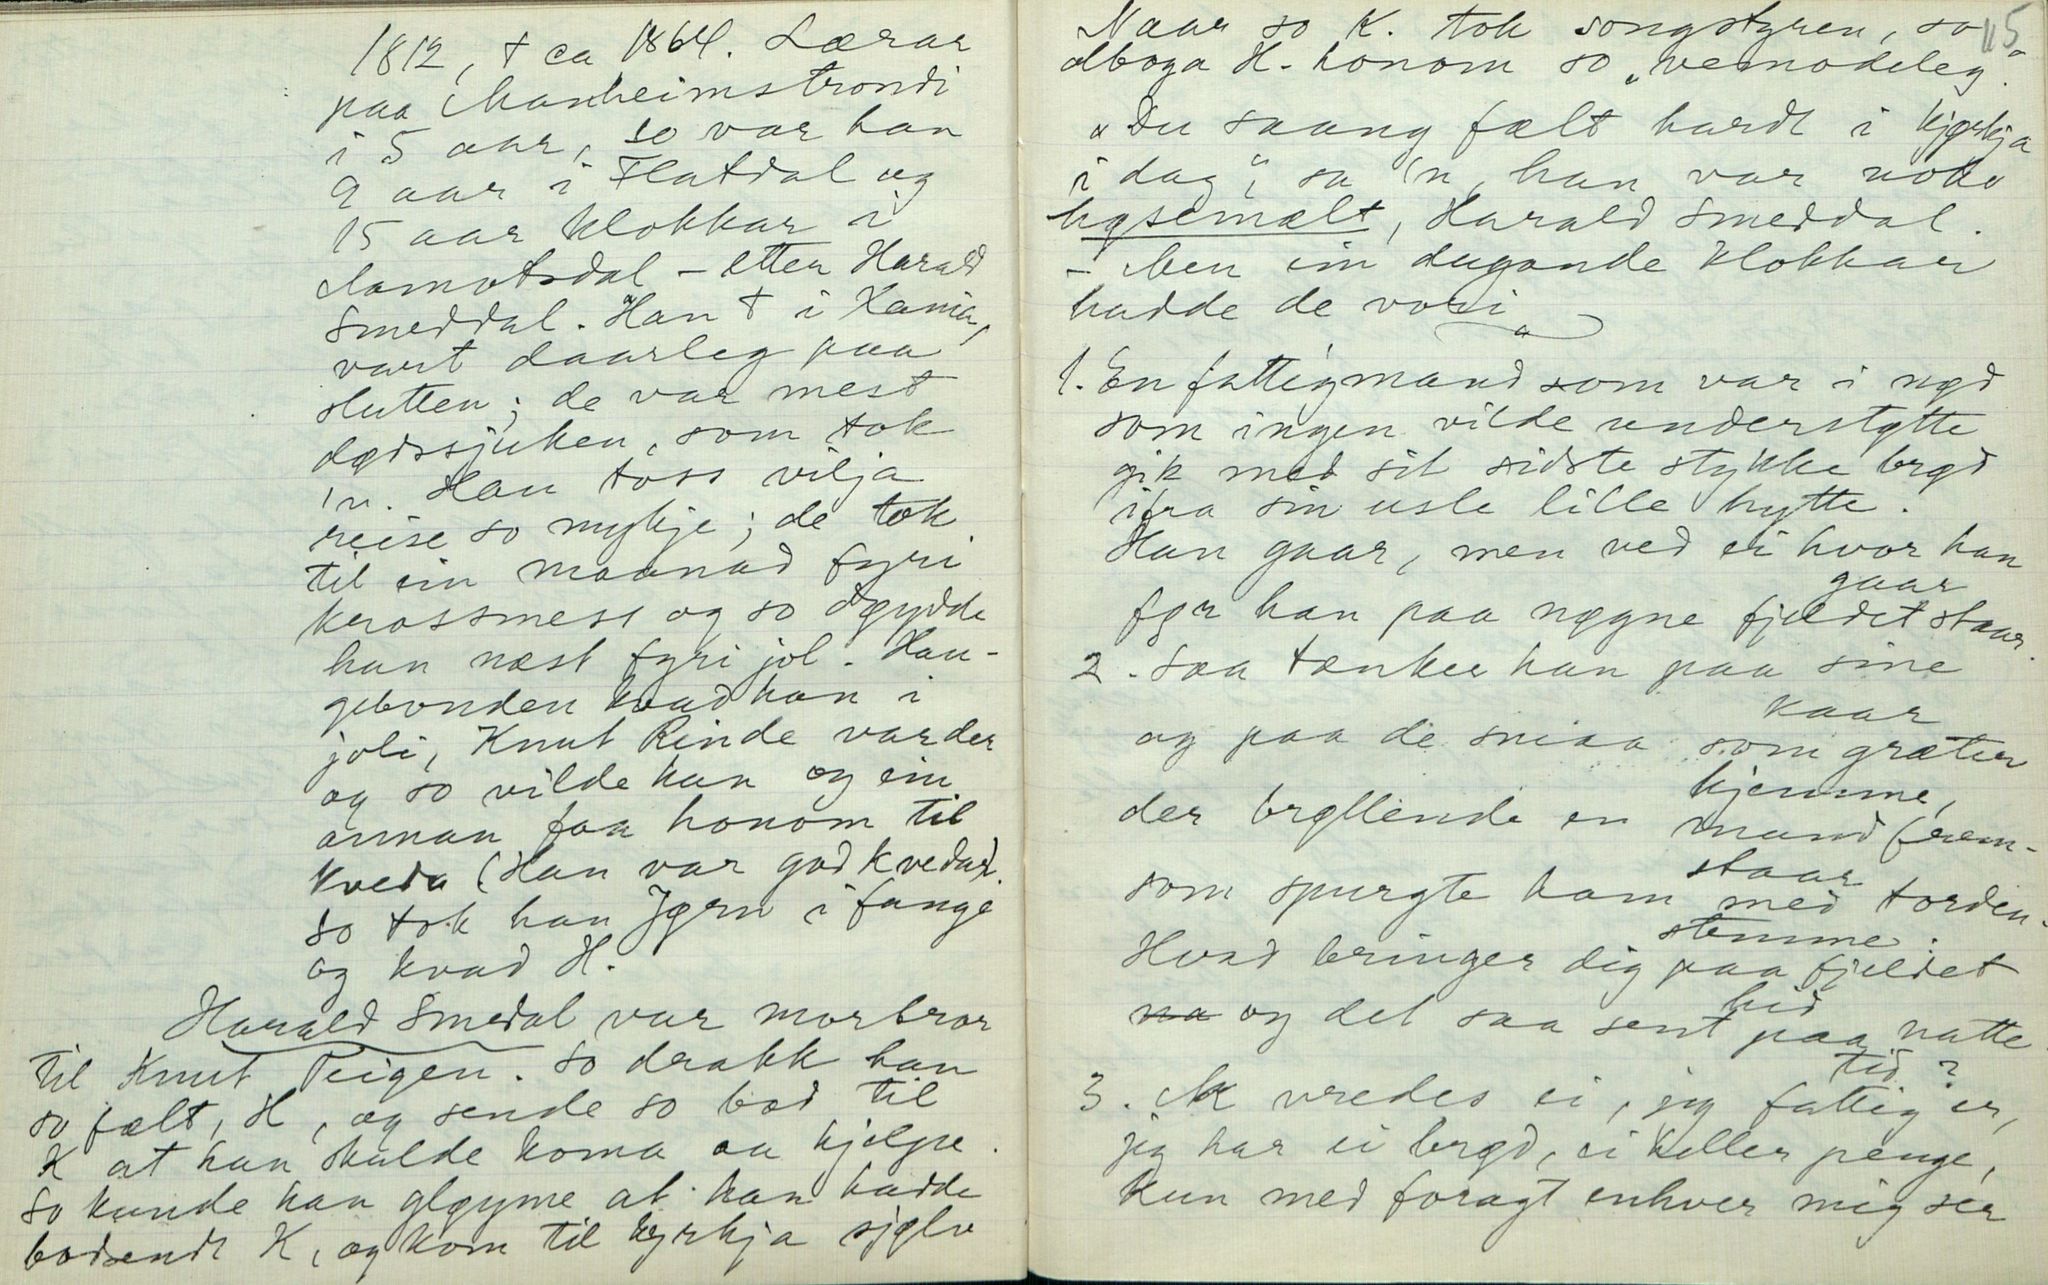 1812, † ca 1864. Lærar
paa Manheimstrondi
i 5 aar, so var han
9 aar i Flatdal og
15 aar klokkar i
Aamotsdal – etter Harald
Smeddal. Han † i Kania,
vart daarleg paa
slutten; de var mest
dødssjuken, som tok
'n. Han toss vilja
reise so mykje; de tok
til ein maanad fyri
krossmess og so døydde
han næst fyri jol. Hau-
gebonden kvad han i
joli, Knut Rinde var der
og so vilde han og ein
annan faa honom til
kveda (Han var god kvedar).
so tok han Jørn i fange
og kvad H.
Harald Smedal var morbror
til Knut Teigen. So drakk han
so fælt, H, og sende so bod til
K at han skulde koma aa hjelpe.
So kunde han gløyme at han hadde
bodsendt K, og kom til kyrkja sjølv
115
Naar so K. tok songstyren, so
olboga H. honom so "vemodeleg".
"Du saang fælt hardt i kjørkja
i dag", sa 'n, han var noko
hæsemælt, Harald Smeddal.
– Men ein dugande klokkar
hadde de vori
1. En fattigmand som var i nød
som ingen vilde understøtte
gik med sit sidste stykke brød
ifra sin usle lille hytte.
Han gaar, men ved ei hvor han
gaar
før han paa nøgne fjeldet staar.
2. Saa tænker han paa sine
kaar
og paa de smaa som græter
hjemme,
der brøllende en mand frem-
staar
som spurgte ham med torden-
stemme:
Hvad bringer dig paa fjeldet
hid
na og det saa sent paa natte
tid?
3. Ak vredes ei, jeg fattig er,
jeg har ei brød, ei heller penge,
kun med foragt enhver mig ser